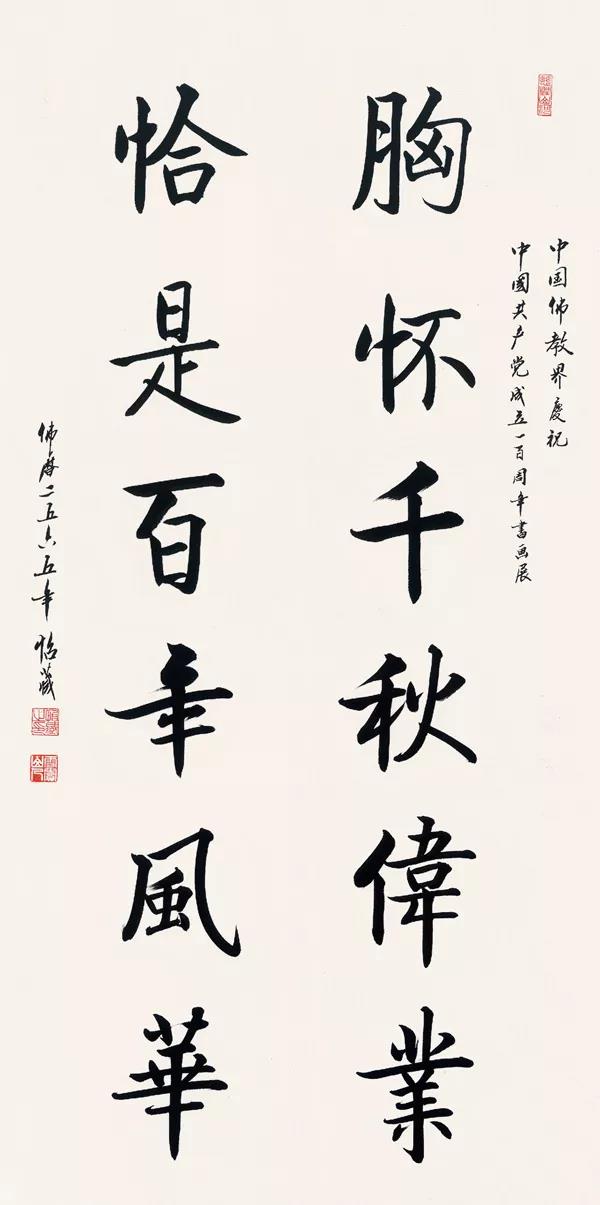 中国佛教界慶祝
中國共产党成立一百周年書画展
胸怀千秋偉業
恰是百年風華
佛曆二五六五年 怡藏